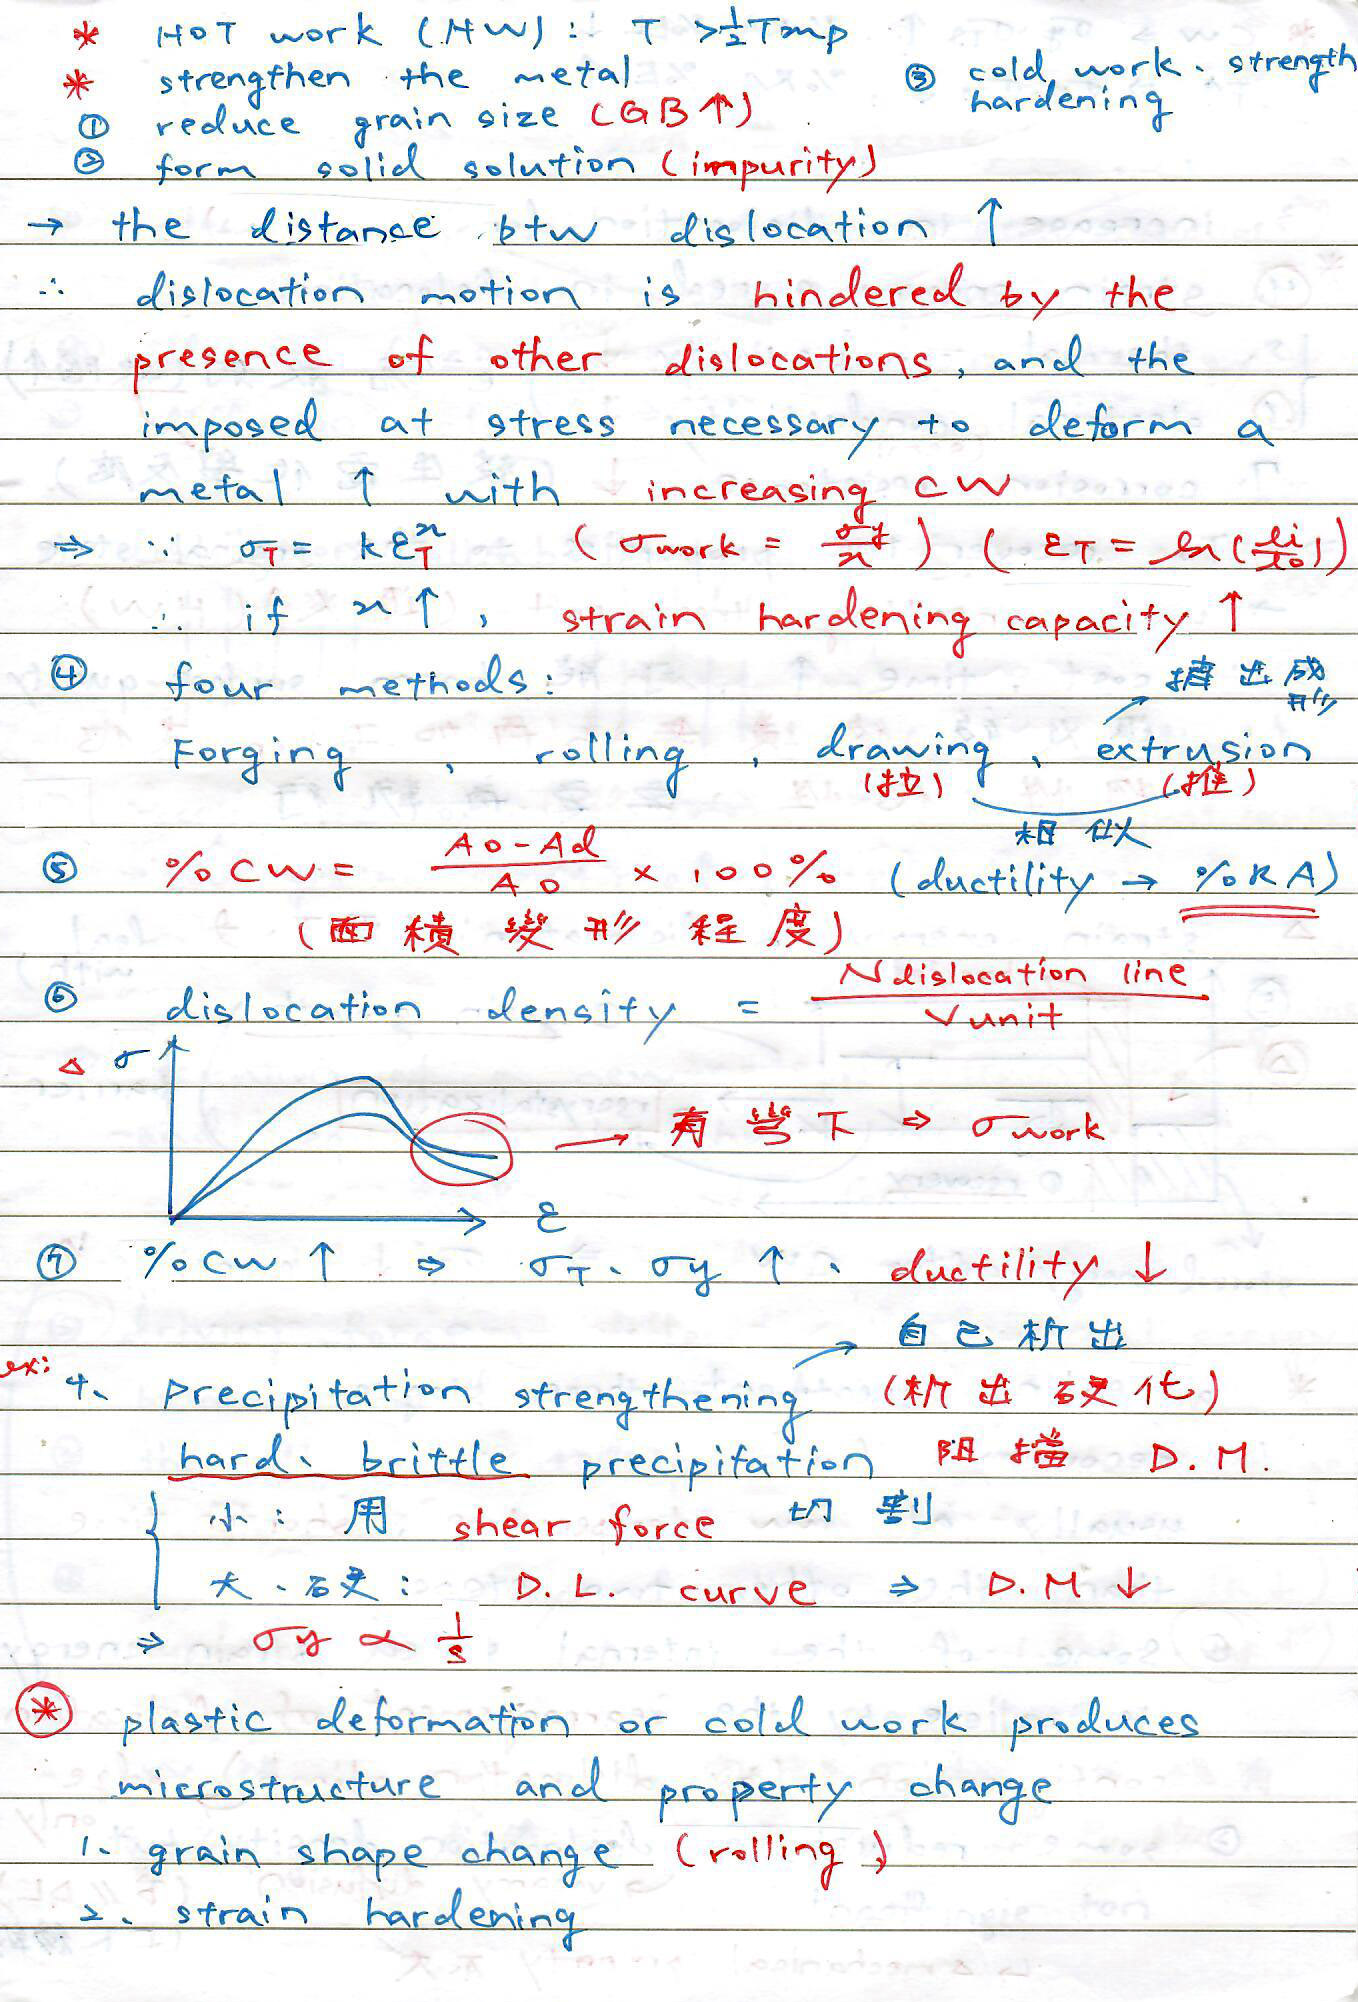 * HOT work (HW): T > 1/2 Tmp
* strengthen the metal
① reduce grain size (GB↑)
② form solid solution (impurity)
③ cold work、strength
hardening
→ the distance btw dislocation ↑
∴ dislocation motion is hindered by the
presence of other dislocations, and the
imposed at stress necessary to deform a
metal ↑ with increasing CW
⇒ ∵ σT = kεT^n (σwork = σy/n) (εT = ln(li/lo))
∴ if n↑, strain hardening capacity ↑
④ four methods: 擠出成
形
Forging、rolling、drawing、extrusion
(拉) (推)
相似
⑤ %CW = (Ao-Ad)/Ao × 100% (ductility → %RA)
(面積變形程度)
⑥ dislocation density = N dislocation line / V unit
△ σ
→ 有當下 ⇒ σwork
ε
⑦ %CW ↑ ⇒ σT、σy ↑、ductility ↓
自己析出
ex: 4、precipitation strengthening (析出硬化)
hard、brittle precipitation 阻擋 D.M.
小: 用 shear force 切割
大、硬: D.L. curve ⇒ D.M ↓
⇒ σy ∝ 1/s
* plastic deformation or cold work produces
microstructure and property change
1、grain shape change (rolling)
2、strain hardening